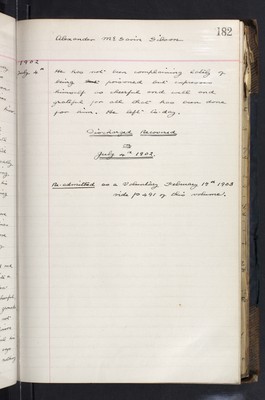 182
Alexander Mc Gavin Gibson
1902
July 4th He has not been complaining lately of
being poisoned but expresses
himself as cheerful and well and
grateful for all that has been done
for him. He left to-day.
Discharged Recovered
July 4th 1902.
Re-admitted as a Voluntary February 19th 1903
vide p. 491 of this volume.